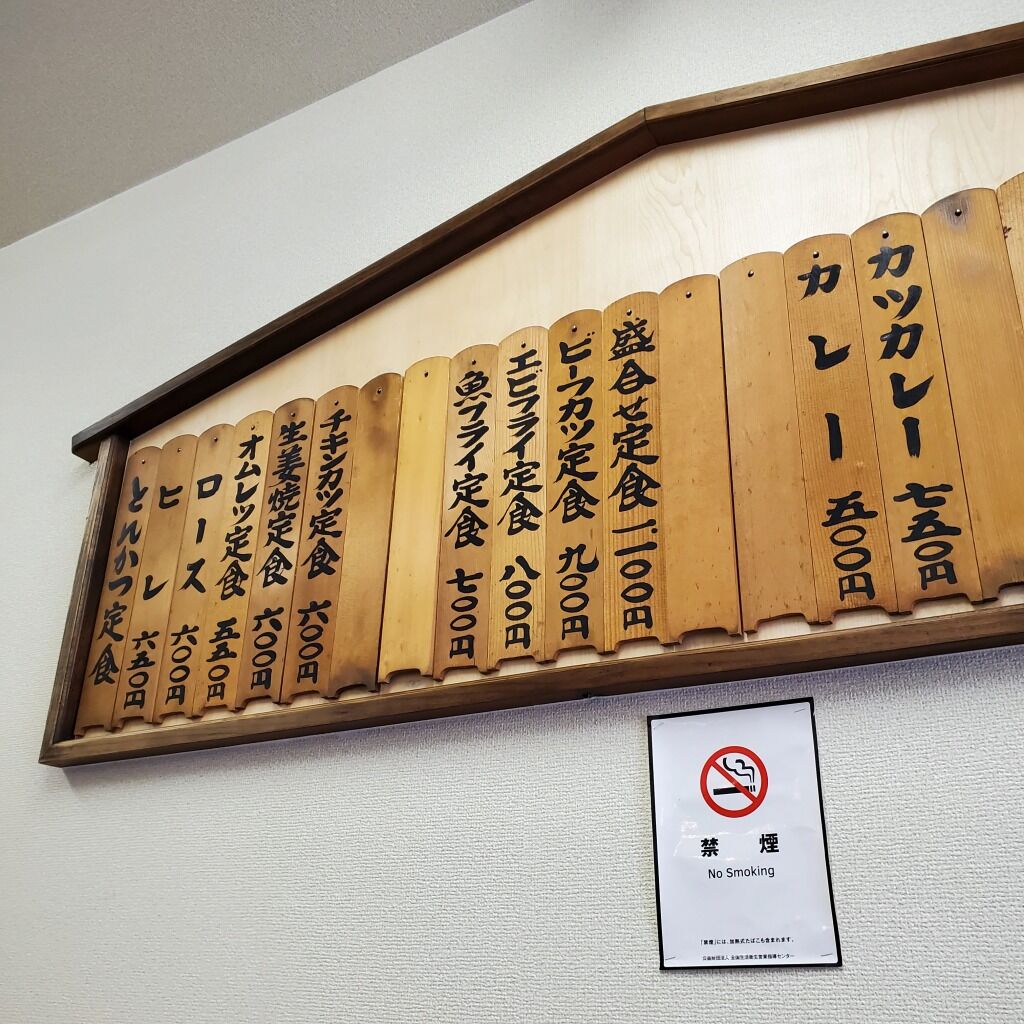 とんかつ定食
ヒレ 六五〇円
ロース 六〇〇円
オムレツ定食 五五〇円
生姜焼定食 六〇〇円
チキンカツ定食 六〇〇円
魚フライ定食 七〇〇円
エビフライ定食 八〇〇円
ビーフカツ定食 九〇〇円
盛合せ定食 一一〇〇円
カレー 五〇〇円
カツカレー 七五〇円
禁煙
No Smoking
「禁煙」には、加熱式たばこも含まれます。
公益財団法人 全国生活衛生営業指導センター